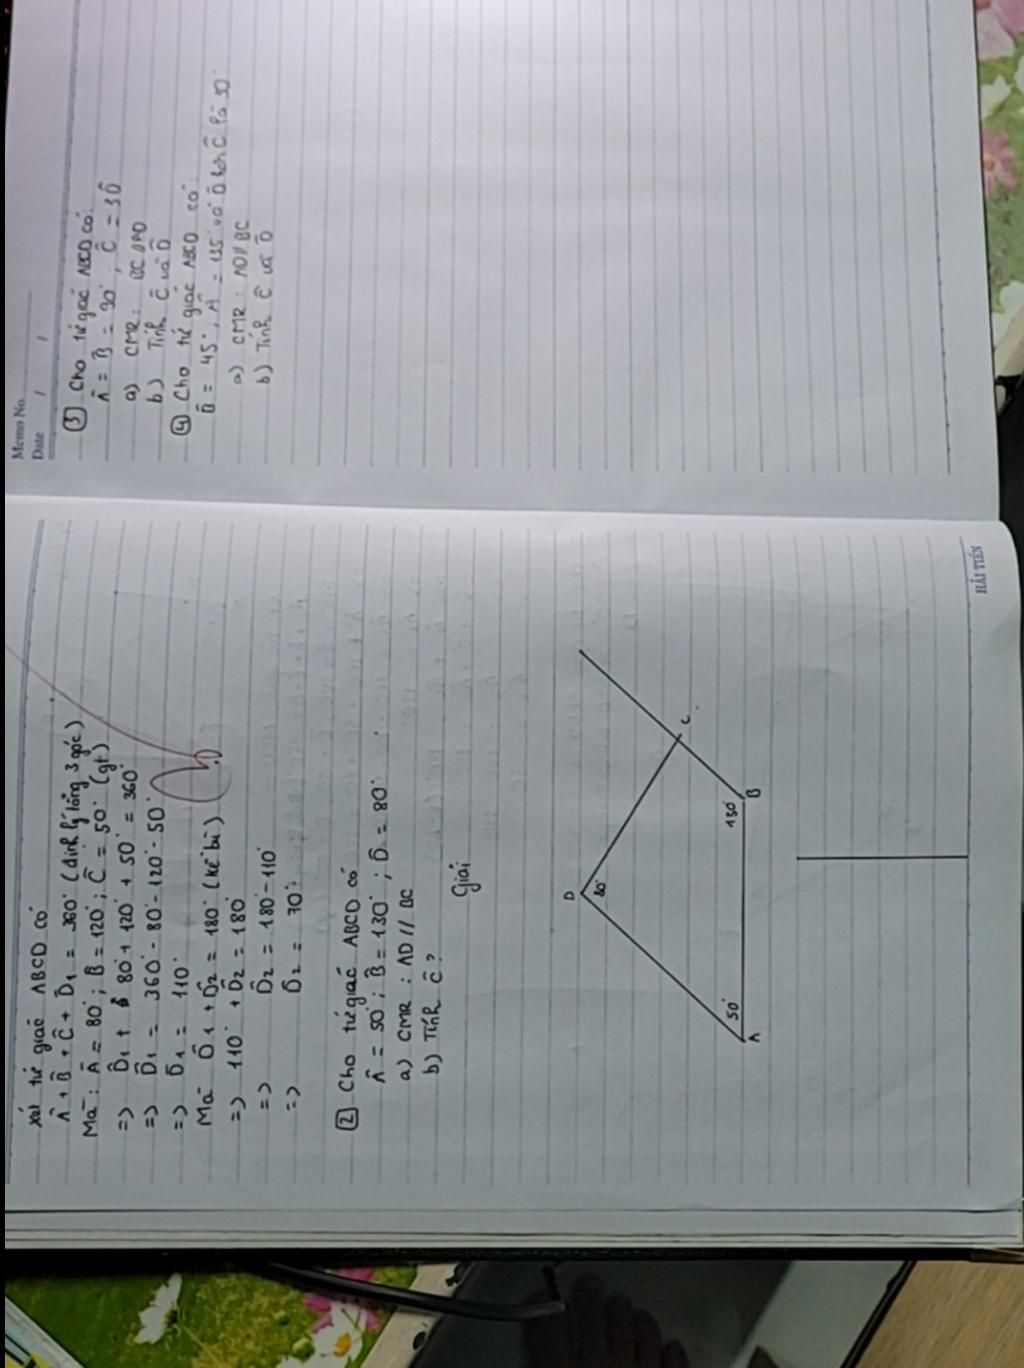 xét tứ giác ABCD có
Â + B̂ + Ĉ + D̂1 = 360° (định lý tổng 3 góc)
Mà: Â = 80°; B̂ = 120°; Ĉ = 50° (gt)
=> D̂1 + 80° + 120° + 50° = 360°
=> D̂1 = 360° - 80° - 120° - 50°
=> D̂1 = 110°
Mà D̂1 + D̂2 = 180° (kề bù)
=> 110° + D̂2 = 180°
=> D̂2 = 180° - 110°
=> D̂2 = 70°
2 Cho tứ giác ABCD có
Â = 50°; B̂ = 130°; D̂ = 80°
a) CMR: AD // BC
b) Tính Ĉ?
Giải
D
80°
C
50°
130°
A
B
HẢI TIẾN
Memo No.
Date / /
3 Cho tứ giác ABCD có:
Â = B̂ = 90°, Ĉ = 3D̂
a) CMR: BC
b) Tính Ĉ và D̂
4 Cho tứ giác ABCD có:
= 45°, Â = 135° và D̂ Ĉ là
a) CMR: AD // BC
b) Tính Ĉ và D̂